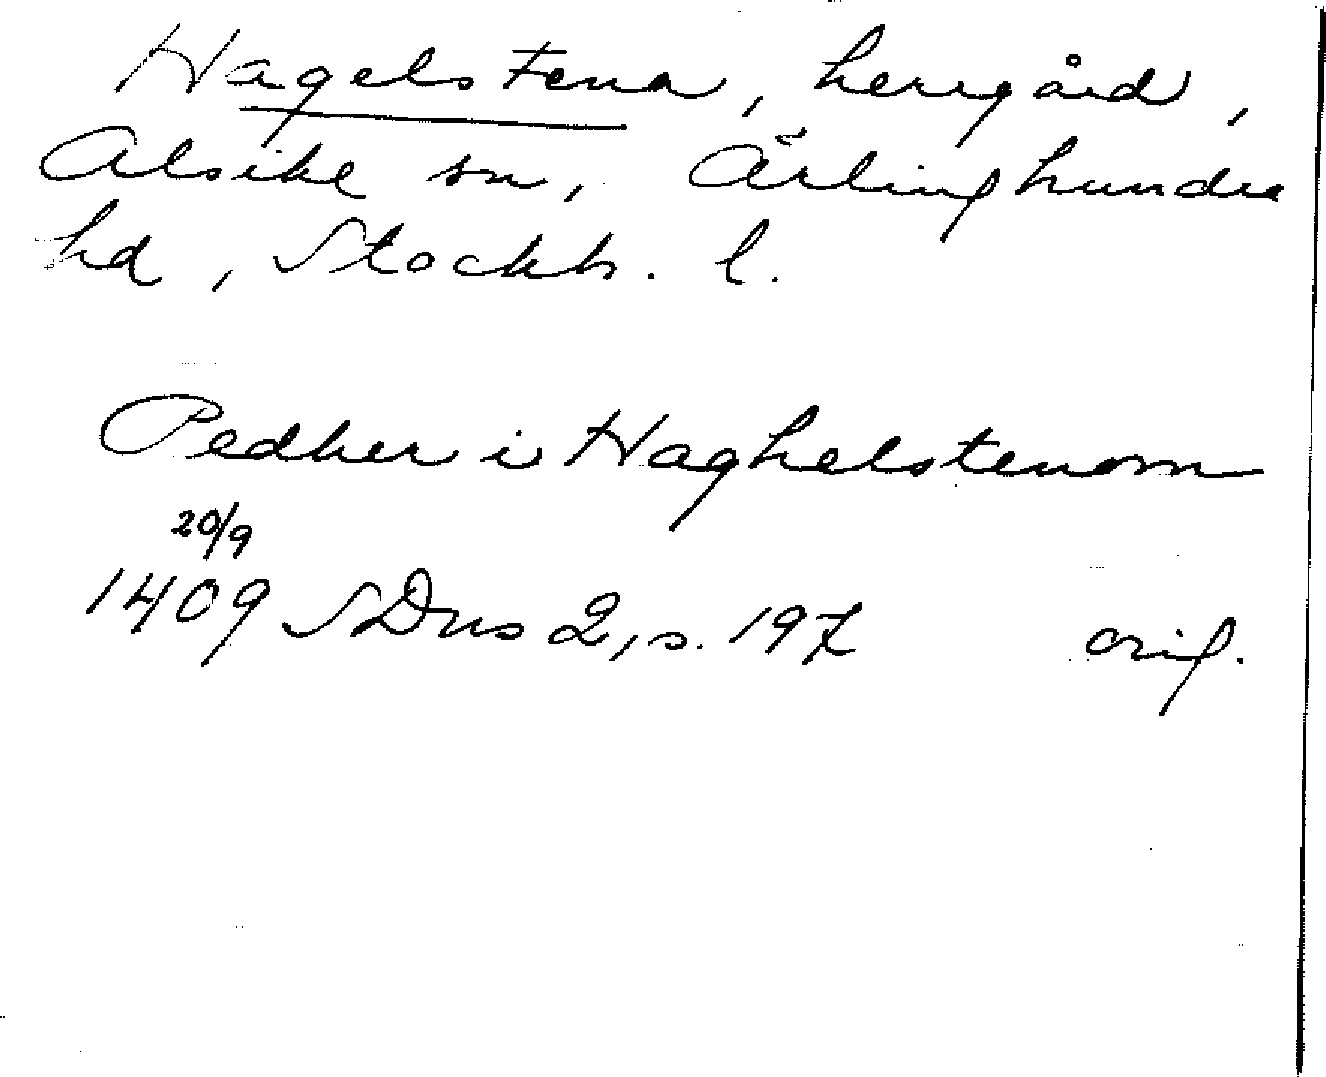 Hagelstena, herrgård,
Alsike sn, Ärlinghundra
hd, Stockh. l.
Pedher i Haghelstenom
20/9
1409 SDns 2, s. 197 orig.